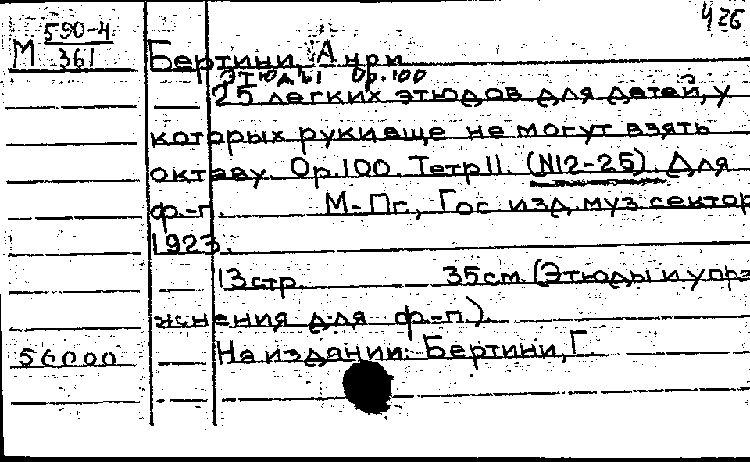 426
М 590-4
361
Бертини, Анри
Этюды Ор.100
25 легких этюдов для детей, у
которых руки еще не могут взять
октаву. Ор.100. Тетр II. (N12-25) Для
ф.-п. М-Пг., Гос изд. муз сектор
1923.
13 стр. 35 см. (Этюды и упра
жнения для ф.-п.).
56000 На издании: Бертини, Г.